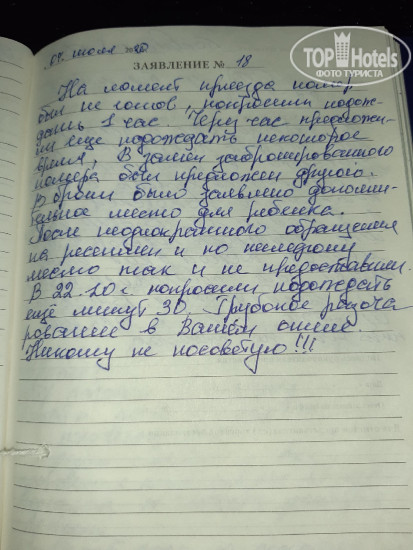 TOPHotels
ФОТО ТУРИСТА
04 июля 2020
ЗАЯВЛЕНИЕ № 18
На момент приезда номер
был не готов, попросили подож-
дать 1 час. Через час предложи-
ли еще подождать некоторое
время, В замен забронированного
номера был предложен другой.
В брони было заявлено дополни-
тельное место для ребенка.
После неоднократного обращения
на ресепшен и по последнему
место так и не предоставили.
В 22.10 г. попросили подождать
ещё минут 30. Грубокое разоча
рование в Вашем отеле.
Никому не посоветую!!!